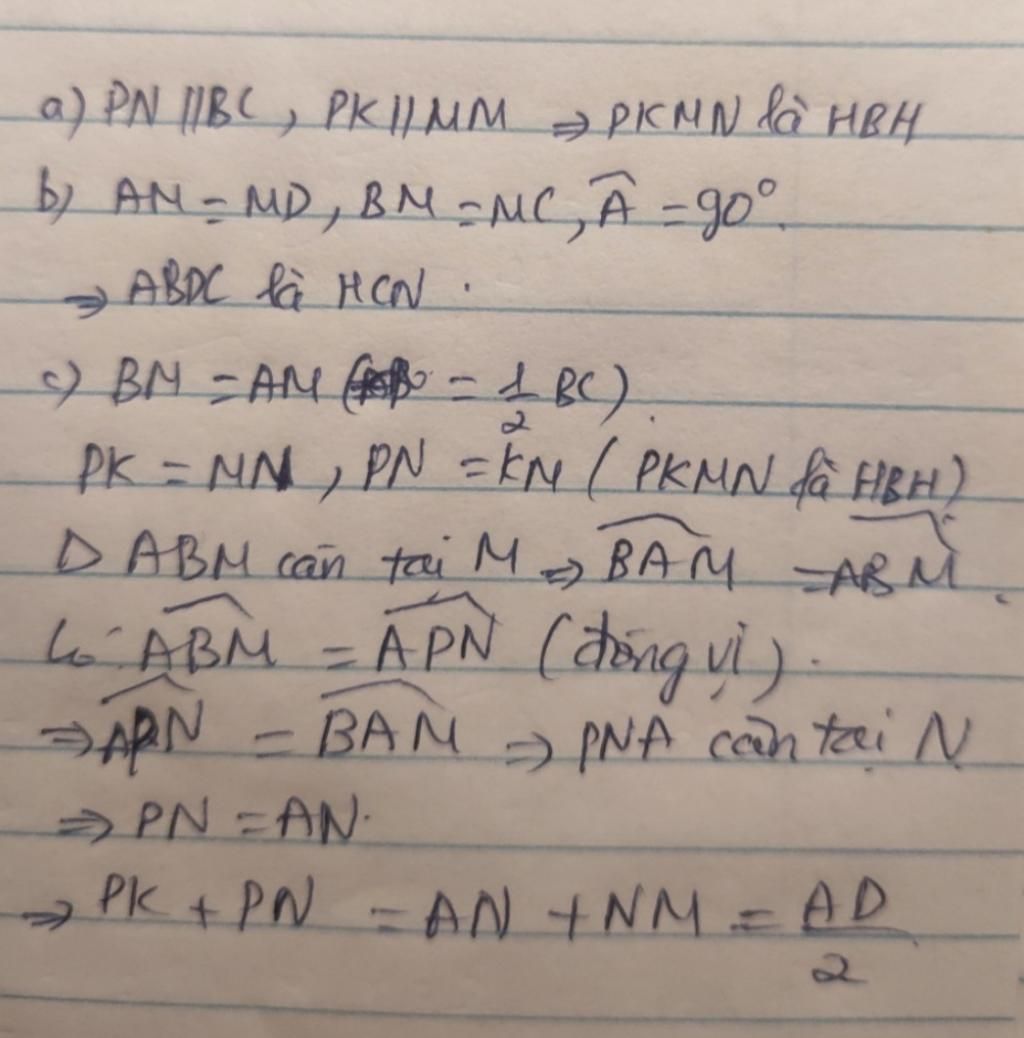 a) PN // BC, PK // NM ⇒ PKMN là HBH
b) AM = MD, BM = MC, Â = 90°.
⇒ ABDC là HCN.
c) BM = AM ( = 1/2 BC).
PK = MN, PN = KM ( PKMN là HBH)
Δ ABM cân tại M ⇒ \widehat{BAM} = \widehat{ABM}.
Có: \widehat{ABM} = \widehat{APN} (đồng vị).
⇒ \widehat{APN} = \widehat{BAM} ⇒ PNA cân tại N
⇒ PN = AN.
⇒ PK + PN = AN + NM = AD/2